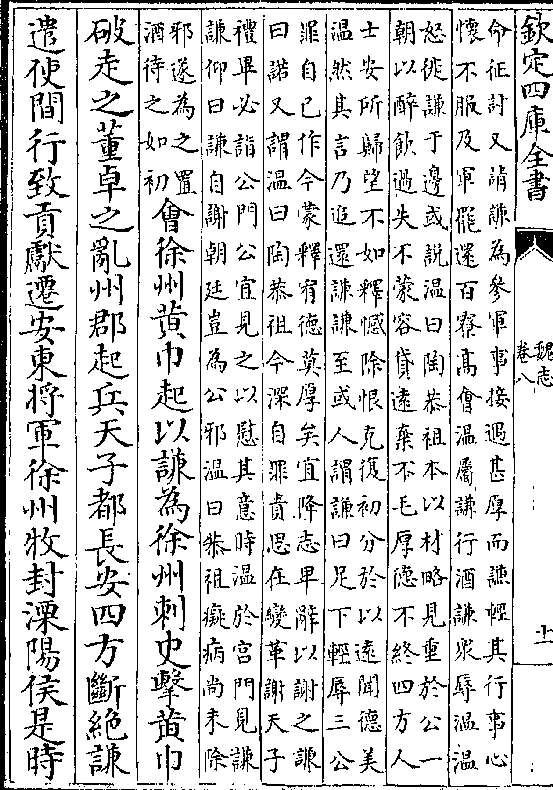 欽定四庫全書
魏志
卷八
十一
命征討又請謙為參軍事接遇甚厚而謙輕其行事心
懷不服及軍罷還百寮高會温屬謙行酒謙衆辱温温
怒徙謙于邊或說温曰陶恭祖本以材略見重於公一
朝以醉飲過失不蒙容貸遠棄不毛厚德不終四方人
士安所歸望不如釋憾除恨克復初分於以遠聞德美
温然其言乃追還謙謙至或人謂謙曰足下輕辱三公
罪自己作今蒙釋宥德莫厚矣宜降志卑辭以謝之謙
曰諾又謂温曰陶恭祖今深自罪責思在變革謝天子
禮畢必詣公門公宜見之以慰其意時温於宮門見謙
謙仰曰謙自謝朝廷豈為公邪温曰恭祖癡病尚未除
邪遂為之置
酒待之如初
會徐州黄巾起以謙為徐州刺史擊黄巾
破走之董卓之亂州郡起兵天子都長安四方斷絶謙
遣使間行致貢獻遷安東將軍徐州牧封溧陽侯是時